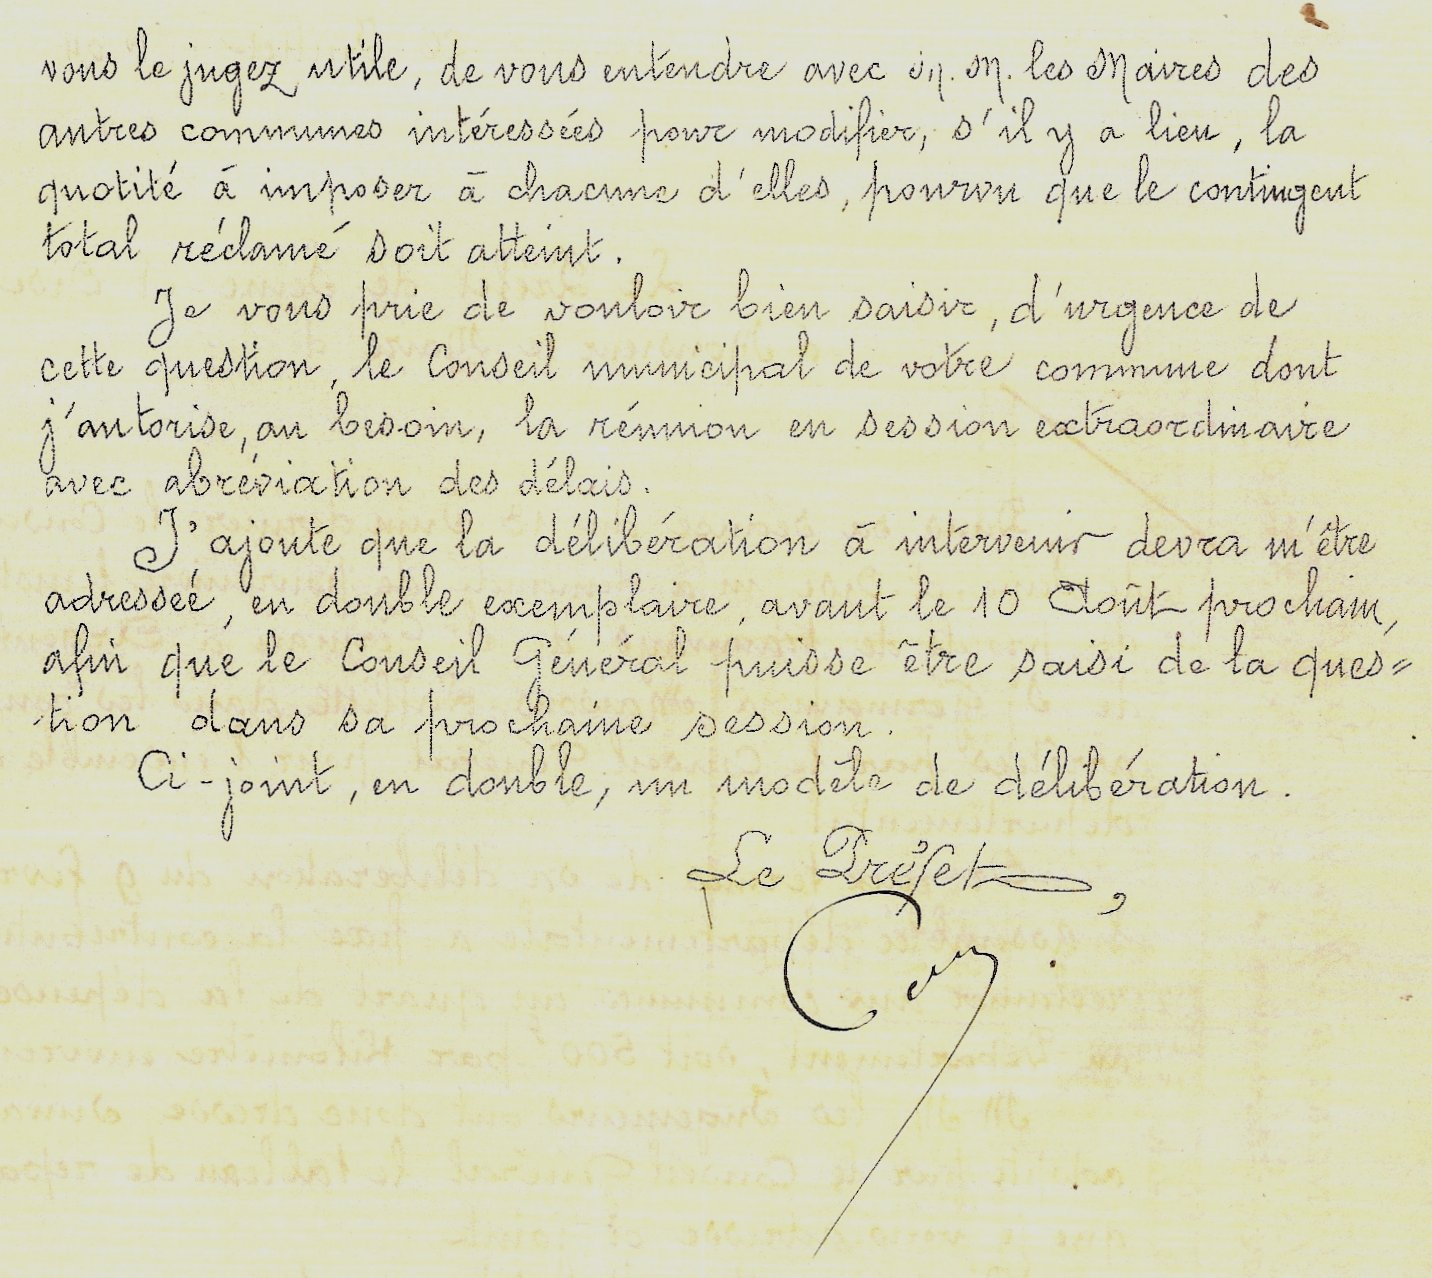 vous le jugez utile, de vous entendre avec M. M. les Maires des
autres communes intéressées pour modifier, s'il y a lieu, la
quotité à imposer à chacune d'elles, pourvu que le contingent
total réclamé soit atteint.
Je vous prie de vouloir bien saisir, d'urgence de
cette question, le Conseil municipal de votre commune dont
j'autorise, au besoin, la réunion en session extraordinaire
avec abréviation des délais.
J'ajoute que la délibération à intervenir devra m'être
adressée, en double exemplaire, avant le 10 Août prochain,
afin que le Conseil Général puisse être saisi de la ques=
tion dans sa prochaine session.
Ci-joint, en double, un modèle de délibération.
Le Préfet,